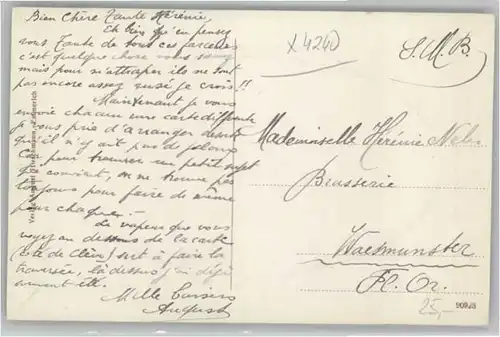 Bien Chère Tante Hérénie,
Eh bien qu'en pensez
vous Tante de tous ces farceurs
c'est quelque chose vous savez
mais pour m'attraper ils ne sont
pas encore assez rusé je crois!!
Maintenant je vous
envoie chacun une carte différente
je vous prie d'arranger de sorte
qu'il n'y ait pas de jaloux
Car pour trouver un petit sujet
qui convient, on ne trouve pas
toujours pour faire de même
pour chaque.
Le vapeur que vous
voyez au dessous de la carte
(côté de Clèves) sert à faire la
traversée, là dessus j'ai déjà
souvent été.
Mille baisers
August
X 4240
S.M.B.
Mademoiselle Hérénie
Brasserie
Waesmunster
Fl. Or.
25,-